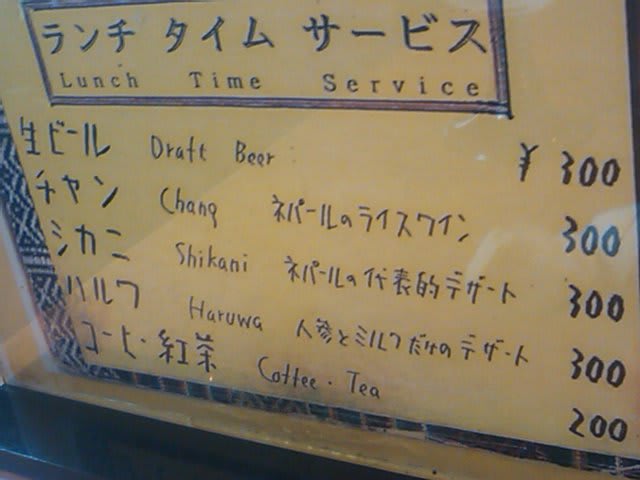 ランチ タイム サービス
Lunch Time Service
生ビール Draft Beer ¥ 300
チャン Chang ネパールのライスワイン 300
シカニ Shikani ネパールの代表的デザート 300
ハルワ Haruwa 人参とミルクだけのデザート 300
コーヒー・紅茶 Coffee・Tea 200